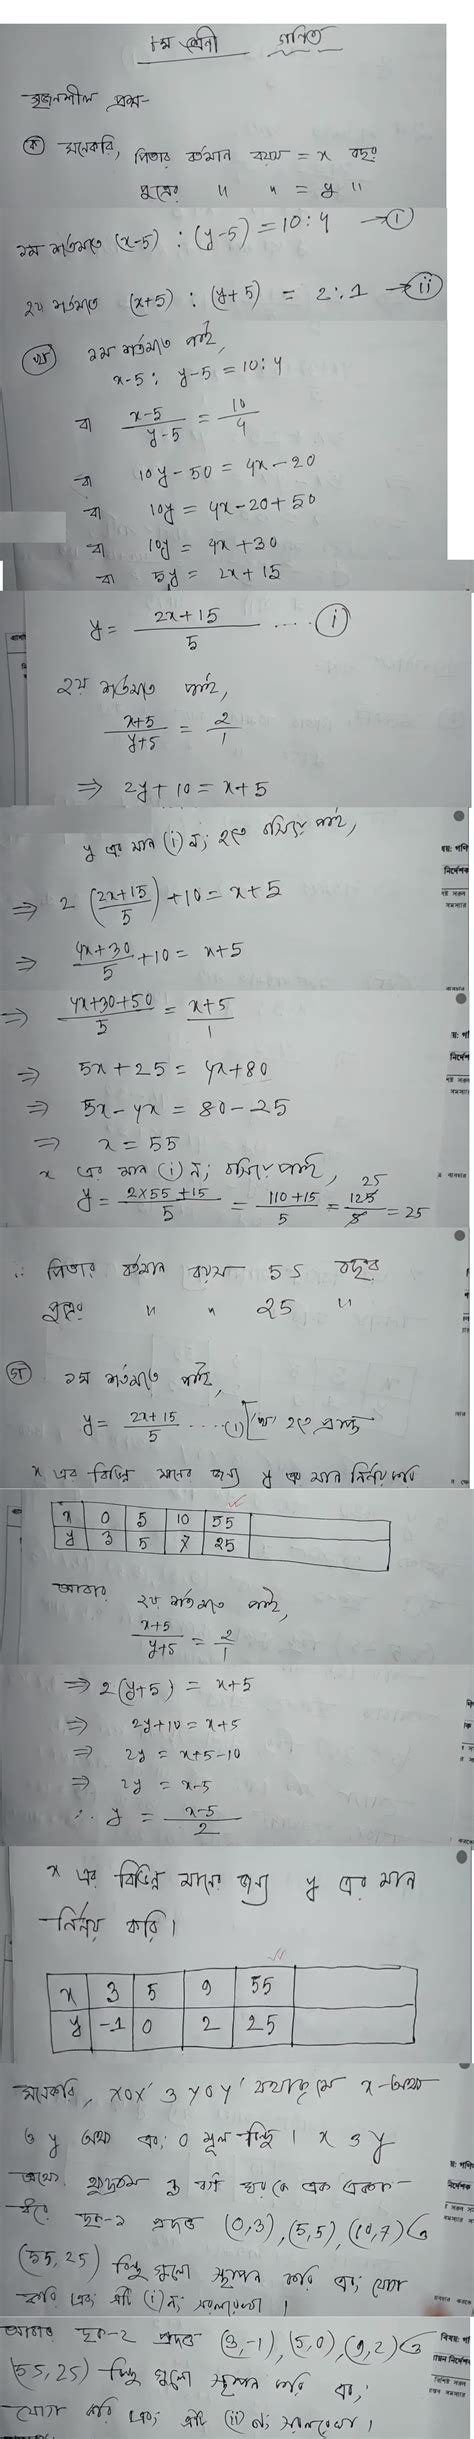 ৮ম শ্রেনী গণিত
সৃজনশীল প্রশ্ন-
ক মনেকরি, পিতার বর্তমান বয়স = x বছর
পুত্রের " " = y "
১ম শর্তমতে (x-5) : (y-5) = 10 : 4 → i
২য় শর্তমতে (x+5) : (y+5) = 2 : 1 → ii
খ ১ম শর্তমতে পাই,
x-5 : y-5 = 10 : 4
বা x-5/y-5 = 10/4
বা 10y - 50 = 4x - 20
বা 10y = 4x - 20 + 50
বা 10y = 4x + 30
বা 5y = 2x + 15
y = 2x+15/5 .... i
২য় শর্তমতে পাই,
x+5/y+5 = 2/1
⇒ 2y + 10 = x + 5
y এর মান (i) নং হতে বসিয়ে পাই,
⇒ 2 (2x+15/5) + 10 = x + 5
⇒ 4x+30/5 + 10 = x + 5
⇒ 4x+30+50/5 = x+5/1
⇒ 5x + 25 = 4x + 80
⇒ 5x - 4x = 80 - 25
⇒ x = 55
x এর মান (i) নং বসিয়ে পাই,
y = 2×55+15/5 = 110+15/5 = 125/5 = 25
25
∴ পিতার বর্তমান বয়স 55 বছর
পুত্রের " " 25 "
গ ১ম শর্তমতে পাই,
y = 2x+15/5 .... (i) ['খ' হতে প্রাপ্ত
x এর বিভিন্ন মানের জন্য y এর মান নির্নয় করি
x 0 5 10 55
y 3 5 7 25
আবার ২য় শর্তমতে পাই,
x+5/y+5 = 2/1
⇒ 2(y+5) = x+5
⇒ 2y+10 = x+5
⇒ 2y = x+5-10
⇒ 2y = x-5
∴ y = x-5/2
x এর বিভিন্ন মানের জন্য y এর মান
নির্নয় করি।
x 3 5 9 55
y -1 0 2 25
মনেকরি, XOX' ও YOY' যথাক্রমে x-অক্ষ
ও y অক্ষ এবং O মূল বিন্দু। x ও y
অক্ষে ক্ষুদ্রতম বর্গ ঘরকে এক একক
ধরে ছক-১ প্রদত্ত (0,3), (5,5), (10,7) ও
(55,25) বিন্দু গুলো স্থাপন করি এবং যোগ
করি এবং এটি (i) নং সরলরেখা।
আবার ছক-2 প্রদত্ত (3,-1), (5,0), (9,2) ও
(55,25) বিন্দু গুলো স্থাপন করি এবং
যোগ করি এবং এটি (ii) নং সরলরেখা।